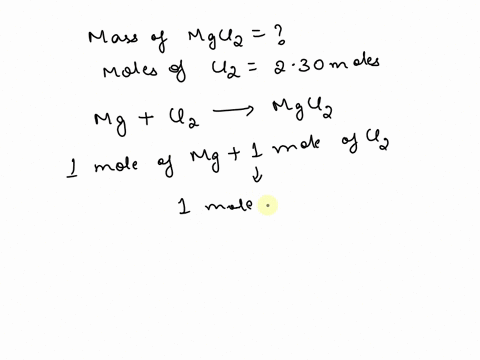 Mass of MgCl2 = ?
Moles of Cl2 = 2.30 moles
Mg + Cl2 → MgCl2
1 mole of Mg + 1 mole of Cl2
↓
1 mole